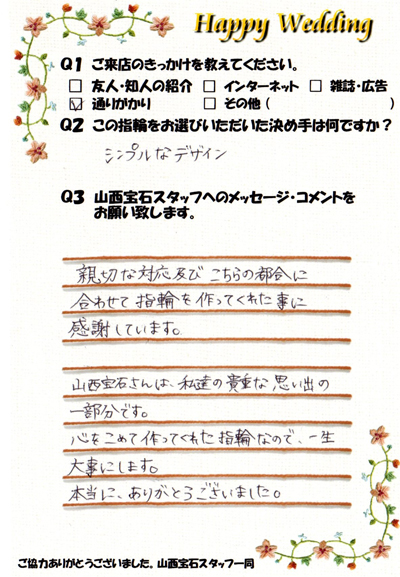 Happy Wedding
Q1 ご来店のきっかけを教えてください。
□ 友人・知人の紹介 □ インターネット □ 雑誌・広告
☑ 通りがかり □ その他 ( )
Q2 この指輪をお選びいただいた決め手は何ですか?
シンプルなデザイン
Q3 山西宝石スタッフへのメッセージ・コメントを
お願い致します。
親切な対応及びこちらの都合に
合わせて指輪を作ってくれた事に
感謝しています。
山西宝石さんは、私達の貴重な思い出の
一部分です。
心をこめて作ってくれた指輪なので、一生
大事にします。
本当に、ありがとうございました。
ご協力ありがとうございました。山西宝石スタッフ一同